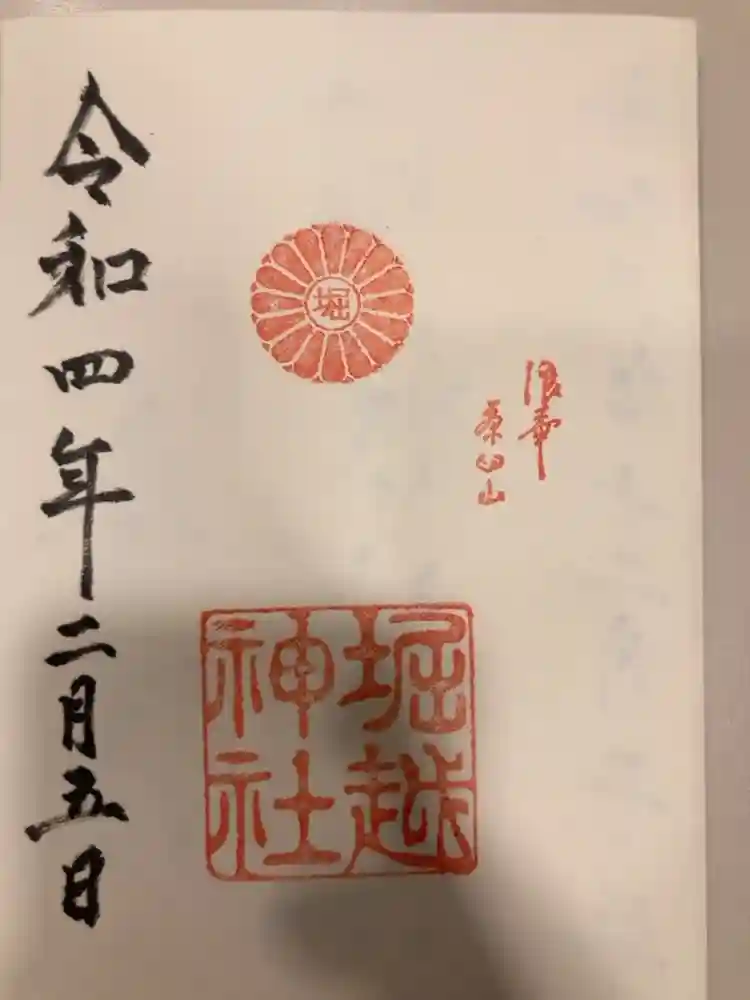 浪華
茶臼山
堀
堀越
神社
令和四年二月五日